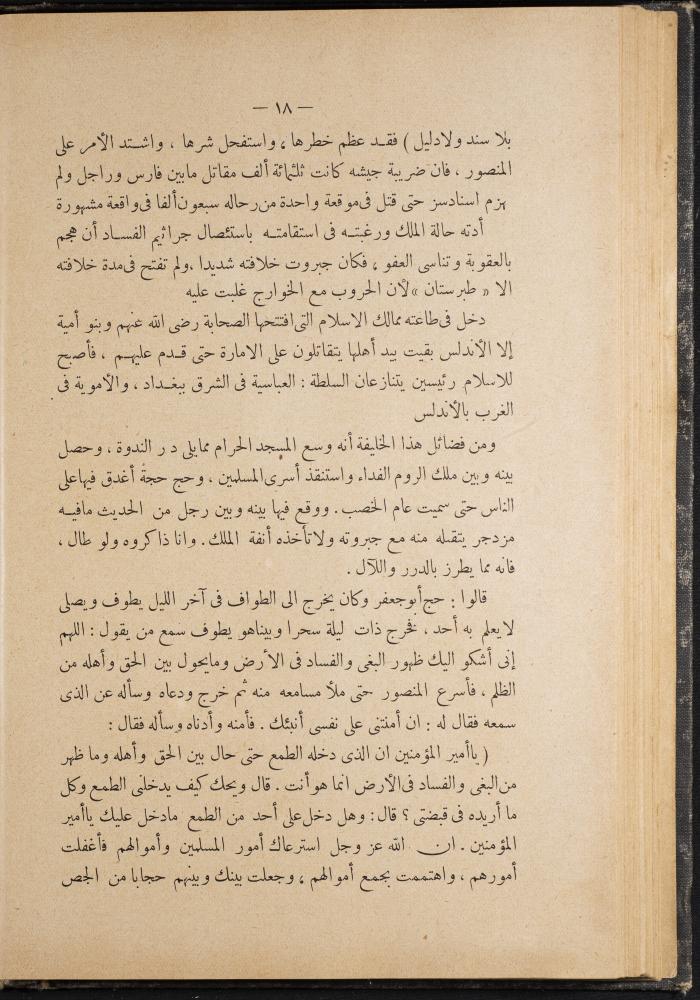 — ١٨ —
بلا سند ولادليل ) فقد عظم خطرها ، واستفحل شرها ، واشتد الأمر على
المنصور ، فان ضريبة جيشه كانت ثلثمائة ألف مقاتل مابين فارس وراجل ولم
يهزم اسنادسز حتى قتل فى موقعة واحدة من رحاله سبعون ألفا فى واقعة مشهورة
أدته حالة الملك ورغبته فى استقامته باستئصال جراثيم الفساد أن هجم
بالعقوبة وتناسى العفو ، فكان جبروت خلافته شديدا ، ولم تفتح فى مدة خلافته
الا « طبرستان » لأن الحروب مع الخوارج غلبت عليه
دخل فى طاعته ممالك الاسلام التى افتتحها الصحابة رضى الله عنهم وبنو أمية
إلا الأندلس بقيت بيد أهلها يتقاتلون على الامارة حتى قدم عليهم ، فأصبح
للاسلام رئيسين يتنازعان السلطة : العباسية فى الشرق ببغداد ، والأموية فى
الغرب بالأندلس
ومن فضائل هذا الخليفة أنه وسع المسجد الحرام ممايلى د ر الندوة ، وحصل
بينه وبين ملك الروم الفداء واستنقذ أسرى المسلمين ، وحج حجة أغدق فيها على
الناس حتى سميت عام الخصب . ووقع فيها بينه وبين رجل من الحديث مافيه
مزدجر يتقبله منه مع جبروته ولا تأخذه أنفة الملك . وانا ذاكروه ولو طال ،
فانه مما يطرز بالدرر واللآل .
قالوا : حج أبوجعفر وكان يخرج الى الطواف فى آخر الليل يطوف ويصلى
لايعلم به أحد ، فخرج ذات ليلة سحرا وبيناهو يطوف سمع من يقول : اللهم
إنى أشكو اليك ظهور البغى والفساد فى الأرض ومايحول بين الحق وأهله من
الظلم ، فأسرع المنصور حتى ملأ مسامعه منه ثم خرج ودعاه وسأله عن الذى
سمعه فقال له : ان أمنتنى على نفسى أنبئك . فأمنه وأدناه وسأله فقال :
( ياأمير المؤمنين ان الذى دخله الطمع حتى حال بين الحق وأهله وما ظهر
من البغى والفساد فى الأرض انما هو أنت . قال ويحك كيف يدخلنى الطمع وكل
ما أريده فى قبضتى ؟ قال : وهل دخل على أحد من الطمع مادخل عليك ياأمير
المؤمنين . ان الله عز وجل استرعاك أمور المسلمين وأموالهم فأغفلت
أمورهم ، واهتممت بجمع أموالهم ، وجعلت بينك وبينهم حجابا من الجص